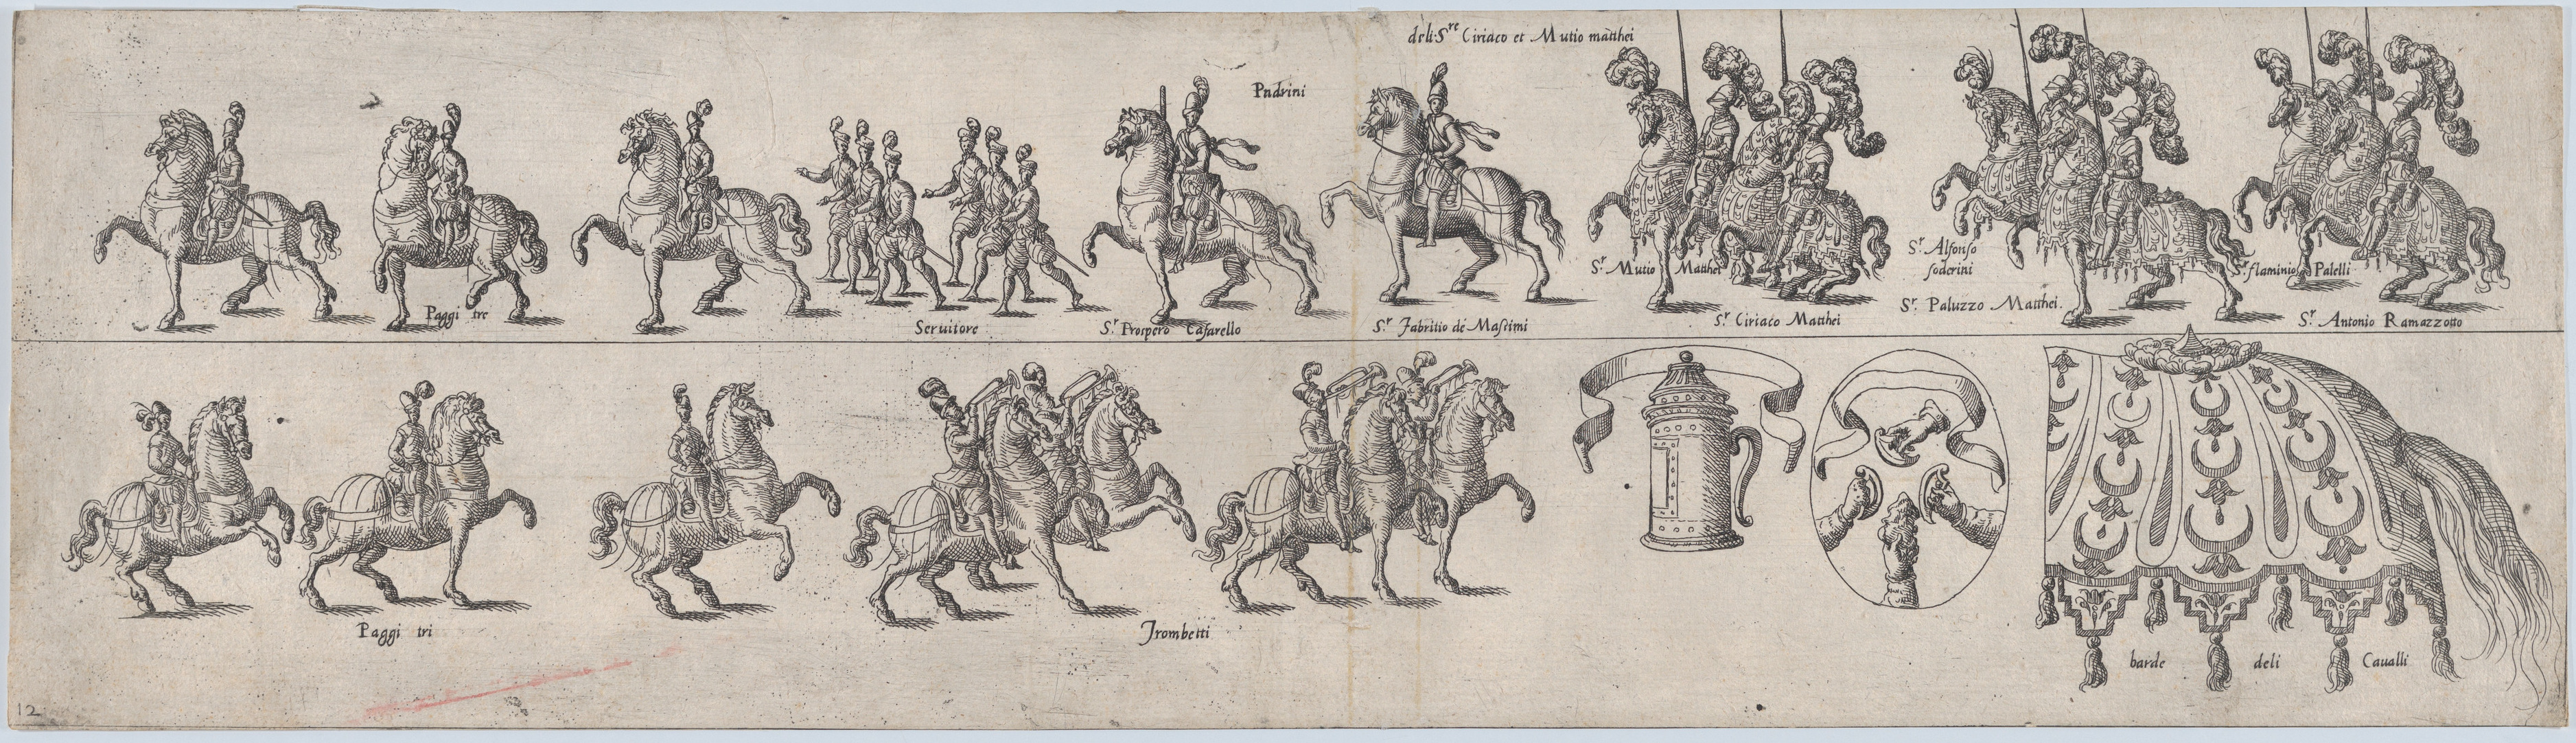 deli Sre Ciriaco et Mutio matthei
Padrini
Paggi tre
Seruitore
Sr Prospero Cafarello
Sr Fabritio de Massimi
Sr Mutio Matthei
Sr Ciriaco Matthei
Sr Alfonso
soderini
Sr Paluzzo Matthei.
Sr flaminio Palelli
Sr Antonio Ramazzotto
Paggi tri
Trombetti
barde deli Caualli
12